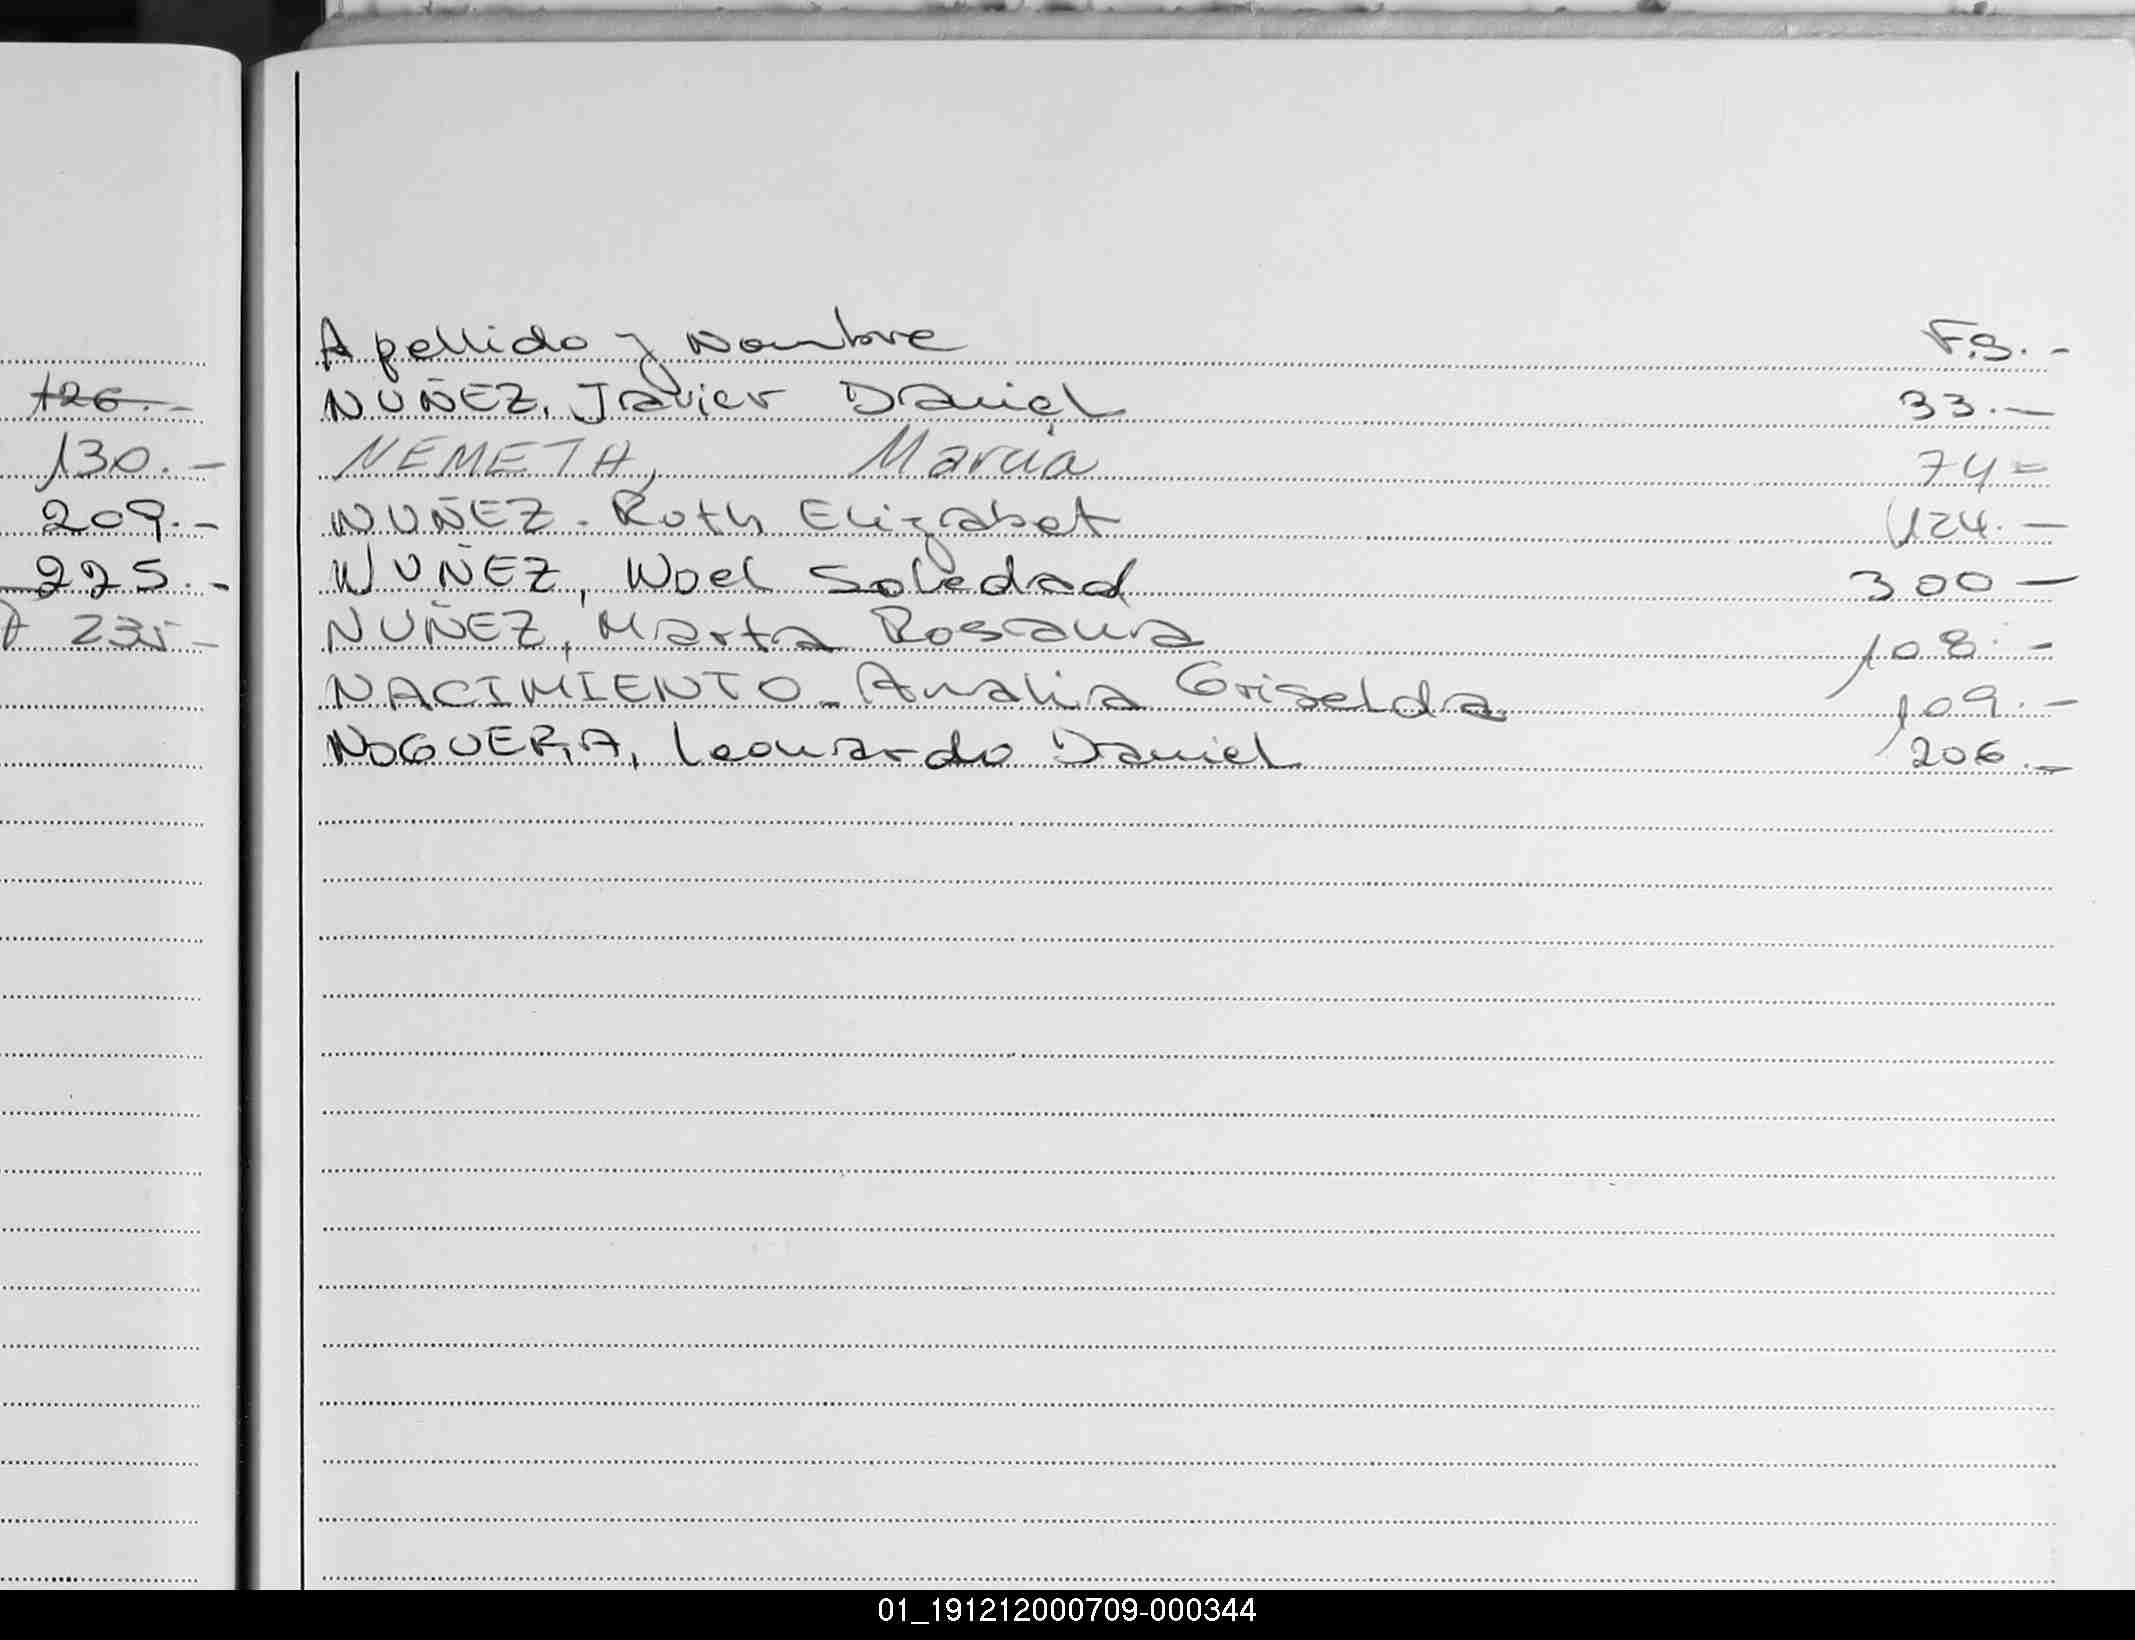 126.-
130.-
209.-
225.-
235-
Apellido y Nombre F.S.-
NUÑEZ, Javier Daniel 33.-
NEMETH, Marcia 74=
NUÑEZ - Roth Elizabet 124.-
NUÑEZ, Noel Soledad 300-
NUÑEZ, Marta Rosaura 108.-
NACIMIENTO - Analia Griselda 109.-
NOGUERA, Leonardo Daniel 206.-
01_191212000709-000344